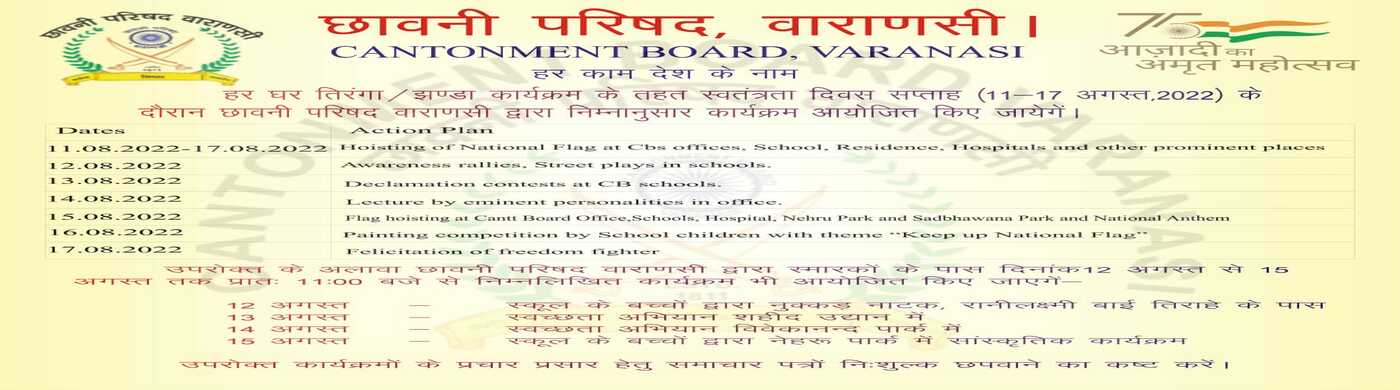 छावनी परिषद वाराणसी
छावनी परिषद, वाराणसी।
CANTONMENT BOARD, VARANASI
हर काम देश के नाम
75
आज़ादी का
अमृत महोत्सव
हर घर तिरंगा/झण्डा कार्यक्रम के तहत स्वतंत्रता दिवस सप्ताह (11–17 अगस्त,2022) के
दौरान छावनी परिषद वाराणसी द्वारा निम्नानुसार कार्यक्रम आयोजित किए जायेगें।
Dates Action Plan
11.08.2022-17.08.2022 Hoisting of National Flag at Cbs offices, School, Residence, Hospitals and other prominent places
12.08.2022 Awareness rallies, Street plays in schools.
13.08.2022 Declamation contests at CB schools.
14.08.2022 Lecture by eminent personalities in office.
15.08.2022 Flag hoisting at Cantt Board Office,Schools, Hospital, Nehru Park and Sadbhawana Park and National Anthem
16.08.2022 Painting competition by School children with theme “Keep up National Flag”
17.08.2022 Felicitation of freedom fighter
उपरोक्त के अलावा छावनी परिषद वाराणसी द्वारा स्मारकों के पास दिनांक12 अगस्त से 15
अगस्त तक प्रातः 11:00 बजे से निम्नलिखित कार्यक्रम भी आयोजित किए जाएगें–
12 अगस्त – स्कूल के बच्चों द्वारा नुक्कड़ नाटक, रानीलक्ष्मी बाई तिराहे के पास
13 अगस्त – स्वच्छता अभियान शहीद उद्यान में
14 अगस्त – स्वच्छता अभियान विवेकानन्द पार्क में
15 अगस्त – स्कूल के बच्चों द्वारा नेहरू पार्क में सांस्कृतिक कार्यक्रम
उपरोक्त कार्यक्रमों के प्रचार प्रसार हेतु समाचार पत्रों निःशुल्क छपवाने का कष्ट करें।
CANTONMENT BOARD VARANASI
1811